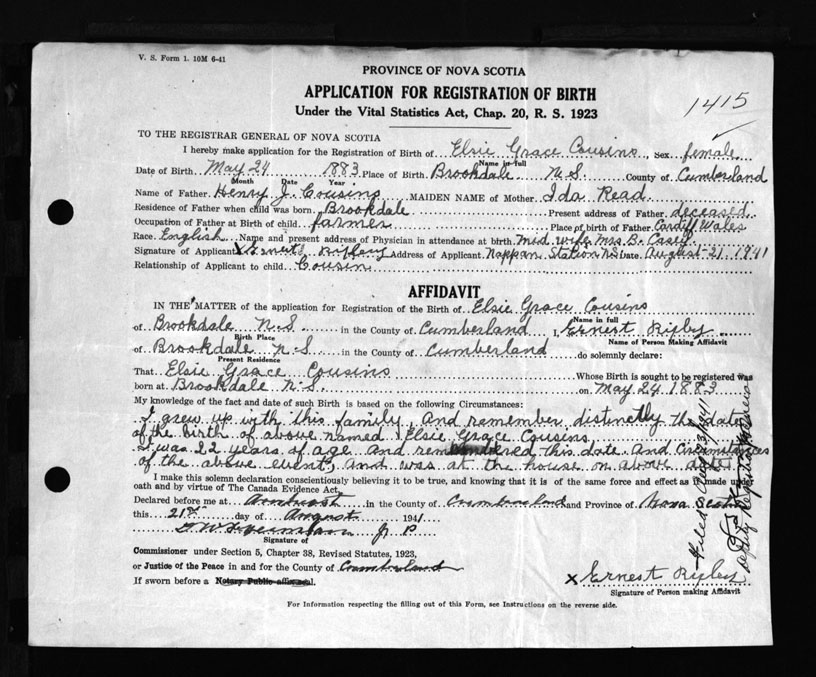 V. S. Form 1. 10M 6-41
PROVINCE OF NOVA SCOTIA
APPLICATION FOR REGISTRATION OF BIRTH
Under the Vital Statistics Act, Chap. 20, R. S. 1923
1415
TO THE REGISTRAR GENERAL OF NOVA SCOTIA
I hereby make application for the Registration of Birth of Elsie Grace Cousins, Sex female
Name in full
Date of Birth May 24 1883 Place of Birth Brookdale N.S. County of Cumberland
Month Date Year
Name of Father Henry J. Cousins MAIDEN NAME of Mother Ida Read
Residence of Father when child was born Brookdale Present address of Father deceased
Occupation of Father at Birth of child farmer Place of birth of Father Cardiff Wales
Race English Name and present address of Physician in attendance at birth Mid wife Mrs B. Casey
Signature of Applicant X Ernest Ripley Address of Applicant Nappan Station N.S. Date August 21 1941
Relationship of Applicant to child Cousin
AFFIDAVIT
IN THE MATTER of the application for Registration of the Birth of Elsie Grace Cousins
Name in full
of Brookdale N.S. in the County of Cumberland I, Ernest Ripley
Birth Place Name of Person Making Affidavit
of Brookdale N.S. in the County of Cumberland do solemnly declare:
Present Residence
That Elsie Grace Cousins Whose Birth is sought to be registered was
born at Brookdale N.S. on May 24 1883
My knowledge of the fact and date of such Birth is based on the following Circumstances:
I grew up with this family, and remember distinctly the date
of the birth of above named Elsie Grace Cousins
I was 22 years of age and remembered this date and Circumstances
of the above event, and was at the house on above date
I make this solemn declaration conscientiously believing it to be true, and knowing that it is of the same force and effect as if made under
oath and by virtue of The Canada Evidence Act.
Declared before me at Amherst in the County of Cumberland and Province of Nova Scotia
this 21st day of August 1941
J. P.
Signature of
Commissioner under Section 5, Chapter 38, Revised Statutes, 1923,
or Justice of the Peace in and for the County of Cumberland
If sworn before a Notary Public affix seal.
X Ernest Ripley
Signature of Person making Affidavit
For Information respecting the filling out of this Form, see Instructions on the reverse side.
Filed Aug 23/1941
Deputy Registrar General